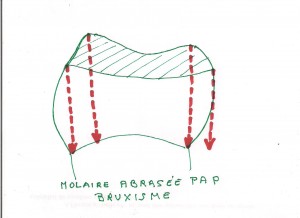 MOLAIRE ABRASÉE PAP
BRUXISME